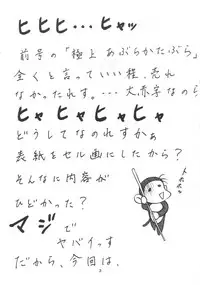 ヒヒヒ･･･ヒャッ
前号の「極上あぶらかたぶら」
全くと言っていい程、売れ
なかったれす。･･･大赤字なのら
ヒャヒャヒャヒャ
どうしてなのれすかぁ
表紙をセル画にしたから?
そんなに内容が
ひどかった?
トホホ〜
マジで
ヤバイっす
だから、今回は、